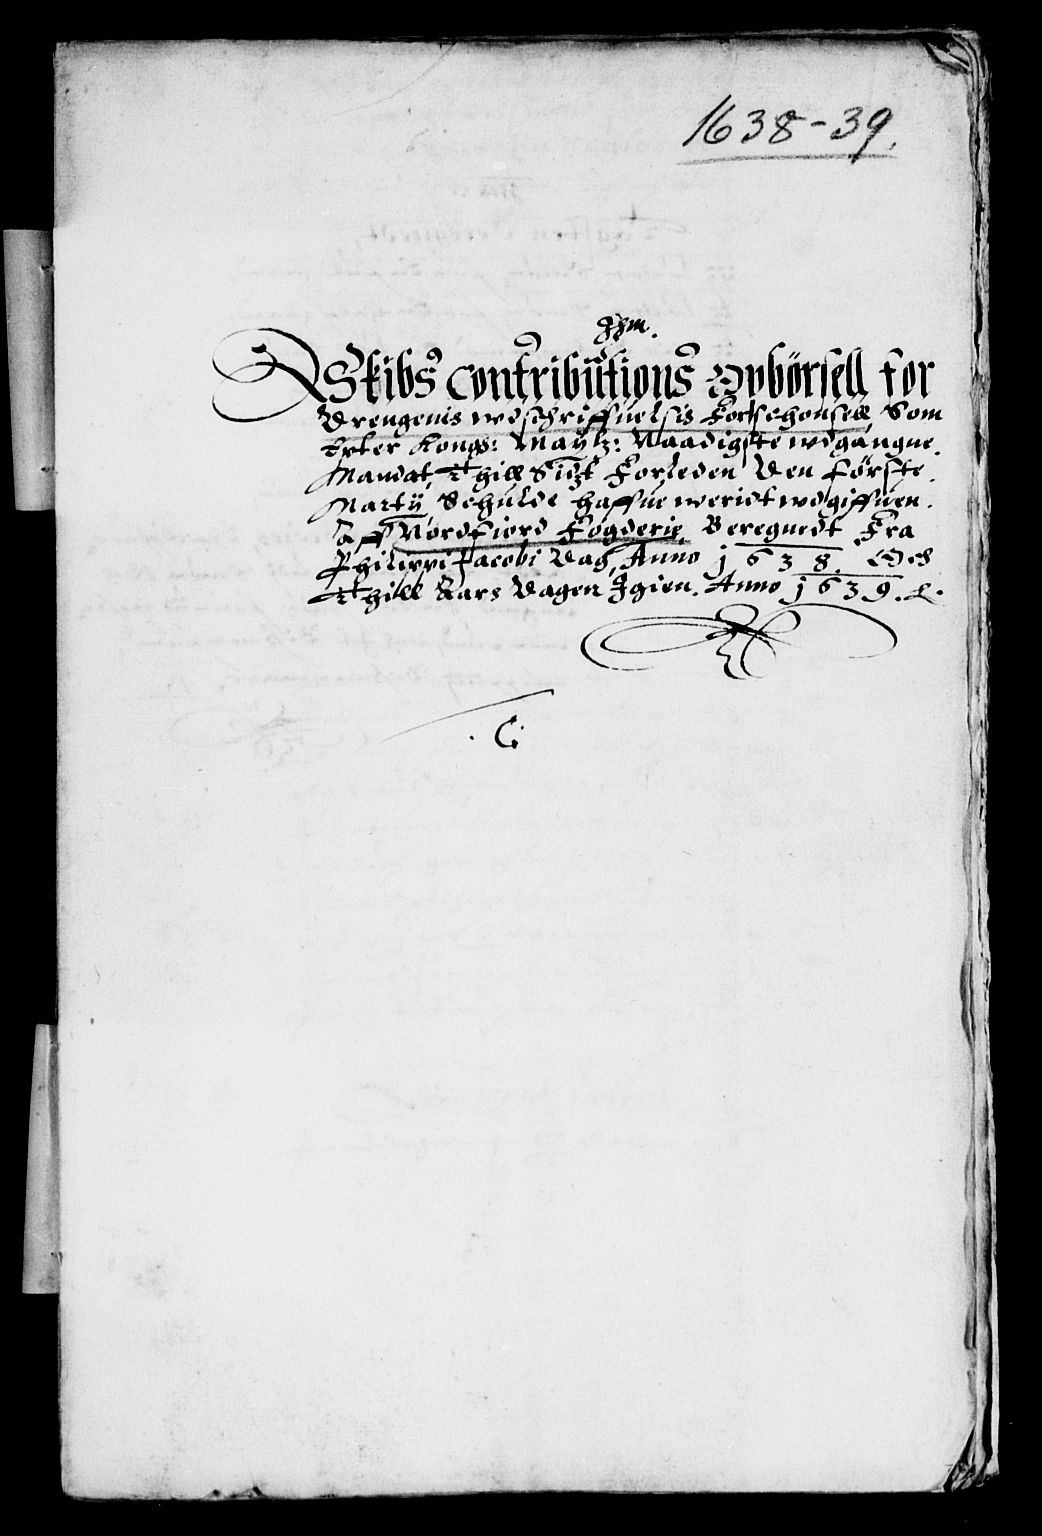 1638-39.
Skibs Contributions Opbörsell for
Drengenis wdschriffuelsis Forschonsell, Som
Epter Kong: Maytz: Naadigste wdgangne
Mandat, Thill Sidst Forleden Den Første
Marty Schulde haffue werit wdgiffuen.
Aff Nordfiord Fogderie Beregnedt Fra
Philippi Jacobi Dag, Anno 1638. Och
Thill Aars Dagen Igien. Anno 1639.
C